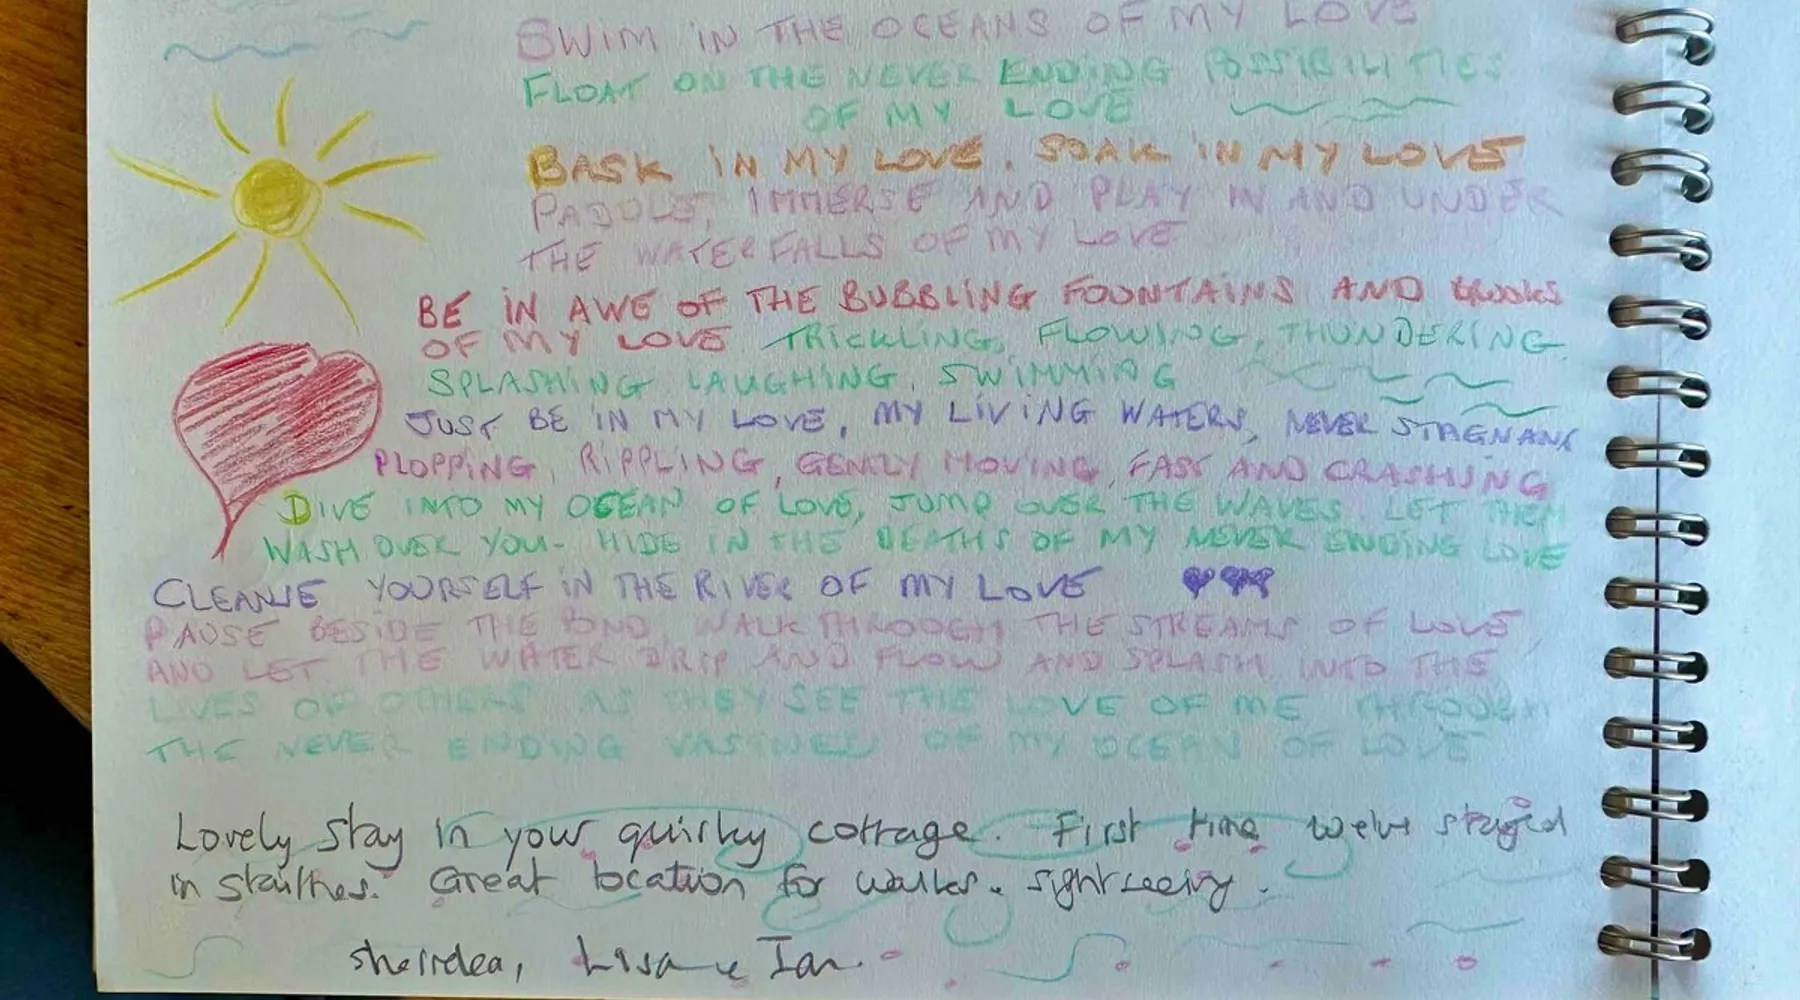 SWIM IN THE OCEANS OF MY LOVE
FLOAT ON THE NEVER ENDING POSSIBILITIES
OF MY LOVE
BASK IN MY LOVE. SOAK IN MY LOVE
PADDLE, IMMERSE AND PLAY IN AND UNDER
THE WATERFALLS OF MY LOVE
BE IN AWE OF THE BUBBLING FOUNTAINS AND brooks
OF MY LOVE TRICKLING, FLOWING, THUNDERING
SPLASHING LAUGHING, SWIMMING
JUST BE IN MY LOVE, MY LIVING WATERS, NEVER STAGNANT
PLOPPING, RIPPLING, GENTLY MOVING, FAST AND CRASHING
DIVE INTO MY OCEAN OF LOVE, JUMP OVER THE WAVES. LET THEM
WASH OVER YOU - HIDE IN THE DEATHS OF MY NEVER ENDING LOVE
CLEANSE YOURSELF IN THE RIVER OF MY LOVE
PAUSE BESIDE THE POND, WALK THROUGH THE STREAMS OF LOVE,
AND LET THE WATER DRIP AND FLOW AND SPLASH INTO THE
LIVES OF OTHERS AS THEY SEE THE LOVE OF ME THROUGH
THE NEVER ENDING VASTNESS OF MY OCEAN OF LOVE
Lovely stay in your quirky cottage. First time we've stayed
in staithes. Great location for walks + sightseeing.
Lisa + Ian.